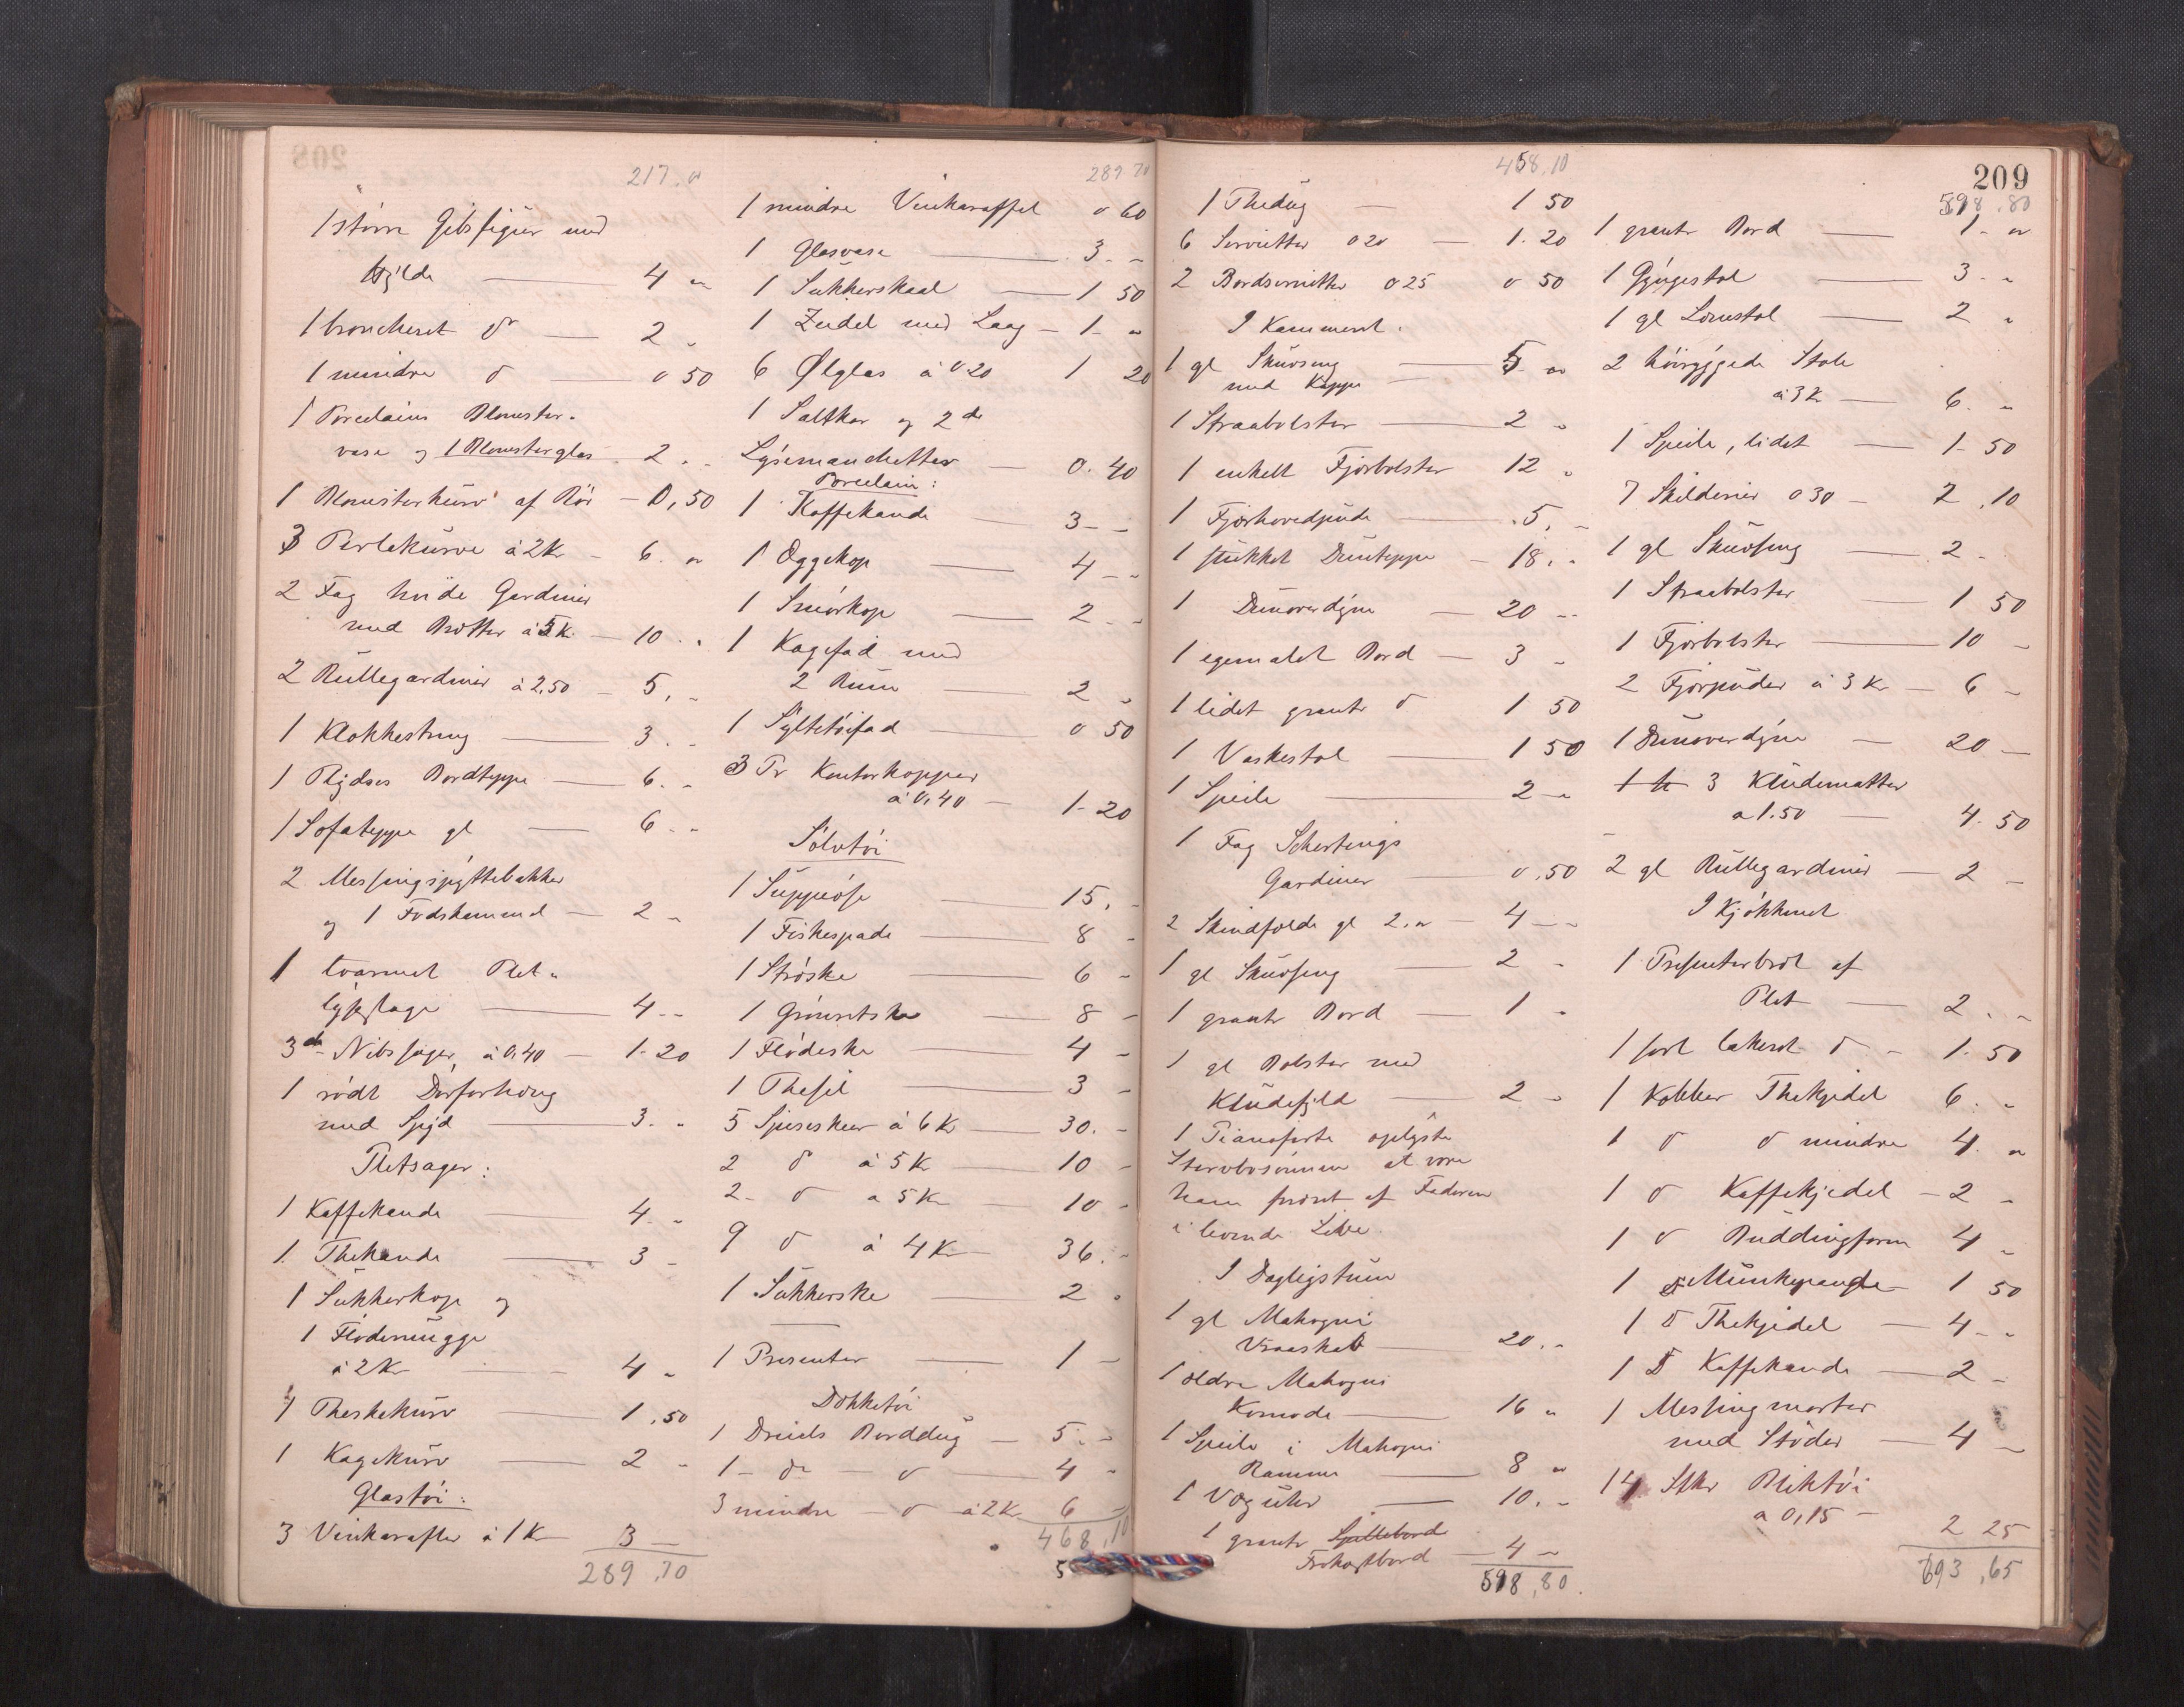 217. "
1 større Gibsfigur med
Hylde — 4 "
1 broncheret do — 2 "
1 mindre do — 0 50
1 Porcelains Blomster-
vase og 1 Blomsterglas 2 . "
1 Blomsterkurv af Rør — 0,50
3 Perlekurve à 2 Kr — 6. "
2 Fag hvide Gardiner
med Bretter à 5 K. — 10. "
2 Rullegardiner à 2,50 — 5, "
1 Klokkestræng — 3. "
1 Plydses Bordteppe — 6. "
1 Sofateppe gl — 6. "
2 Messingspyttebakker
og 1 Fodskammel — 2 "
1 toarmet Plet-
lysestage — 4 - -
3 do Nibssager à 0,40 — 1-20
1 rødt Dørforhæng
med Spyd — 3. "
Pletsager:
1 Kaffekande — 4. "
1 Thekande — 3 -
1 Sukkerkop og
1 Flødemugge
à 2 Kr — 4 "
1 Theskekurv — 1,50
1 Kagekurv — 2 "
Glastøi:
3 Vinkarafler à 1 K — 3 —
289,70
289 70
1 mindre Vinkaraffel 0 60
1 Glasvase — 3. -
1 Sukkerskaal — 1 50
1 Zeidel med Laag — 1 - "
6 Ølglas à 0 20 1 20
1 Saltkar og 2 de
Lysemanchetter — 0. 40
Porcelain:
1 Kaffekande — 3 - -
1 Æggekop — 4 - "
1 Smørkop — 2 - -
1 Kagefad med
2 Rum — 2 "
1 Syltetøifad — 0 50
3 Pr Kontorkopper
à 0,40 — 1-20
Sølvtøi
1 Suppeøse — 15, -
1 Fiskespade — 8 -
1 Strøske — 6 -
1 Grøntske — 8 -
1 Flødeske — 4 -
1 Thesil — 3 -
5 Spiseskeer à 6 Kr — 30. -
2 do à 5 K — 10 -
2 - do a 5 K — 10 -
9 do à 4 Kr — 36. -
1 Sukkerske — 2 "
1 Presenter — 1 -
Dækketøi
1 Dreiels Borddug — 5. -
1 - do - do — 4 "
3 mindre - do à 2 K 6 -
468,10
5
458,10
1 Thedug — 1 50
6 Servietter 0 20 — 1. 20
2 Bordservietter 0 25 0 50
I Kammeret.
1 gl Skuvseng — 5 "
med Kappe
1 Straabolster — 2 "
1 enkelt Fjærbolster 12 "
1 Fjærhovedpude — 5, -
1 stukket Dunteppe — 18. "
1 Dunoverdyne — 20 - -
1 egemalet Bord — 3 -
1 lidet granet do 1 50
1 Vaskestol — 1 50
1 Speile — 2 - "
1 Fag Schertings
Gardiner — 0,50
2 Skindfælde gl 2. " — 4 - -
1 gl Skuvseng — 2 -
1 granet Bord — 1 "
1 gl Bolster med
Kludefyld — 2 "
1 Pianoforte oplyste
Stervbosønnen at være
ham foræret af Faderen
i levende Live.
I Dagligstuen
1 gl Mahogni
Vraaskab — 20. -
1 ældre Mahogni
Komode — 16 "
1 Speile i Mahogni
Ramme — 8 "
1 Væguhr — 10. -
1 granet Spillebord
Frokostbord — 4 -
598,80.
209
598.80
1 granet Bord — 1 - "
1 Gyngestol — 3 - "
1 gl Lænestol — 2 "
2 høirygede Stole
à 3 Kr — 6. "
1 Speile, lidet — 1- 50
7 Skilderier 0 30 — 2.10
1 gl Skuvseng — 2 -
1 Straabolster — 1 50
1 Fjærbolster — 10 -
2 Fjærpuder à 3 Kr — 6 -
1 Dunoverdyne — 20 -
3 Kludematter
a 1.50 — 4. 50
2 gl Rullegardiner — 2 -
I Kjøkkenet
1 Presenterbræt af
Plet — 2. "
1 sort lakeret do — 1. 50
1 Kobber Thekjedel 6. "
1 do do mindre 4. "
1 do Kaffekjedel — 2 -
1 do Puddingform 4 "
1 do Munkepande — 1 50
1 do Thekjedel — 4 - "
1 do Kaffekande — 2 -
1 Messingmorter
med Støder — 4 -
14 Stkr Bliktøi
a 0,15 — 2 25
693,65